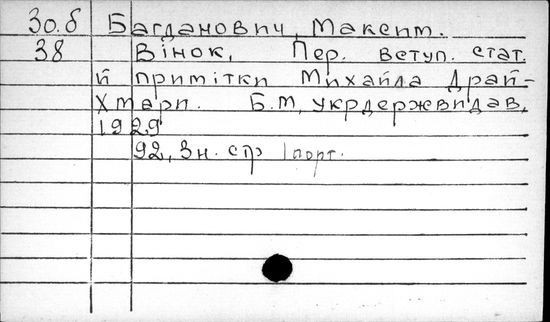 30.б Багданович, Максим.
38 Вінок, Пер. вступ. стат.
й примітки Михайла Драй-
Хмари. Б.м, укрдержвидав,
1929
92, 3н. стр 1порт.